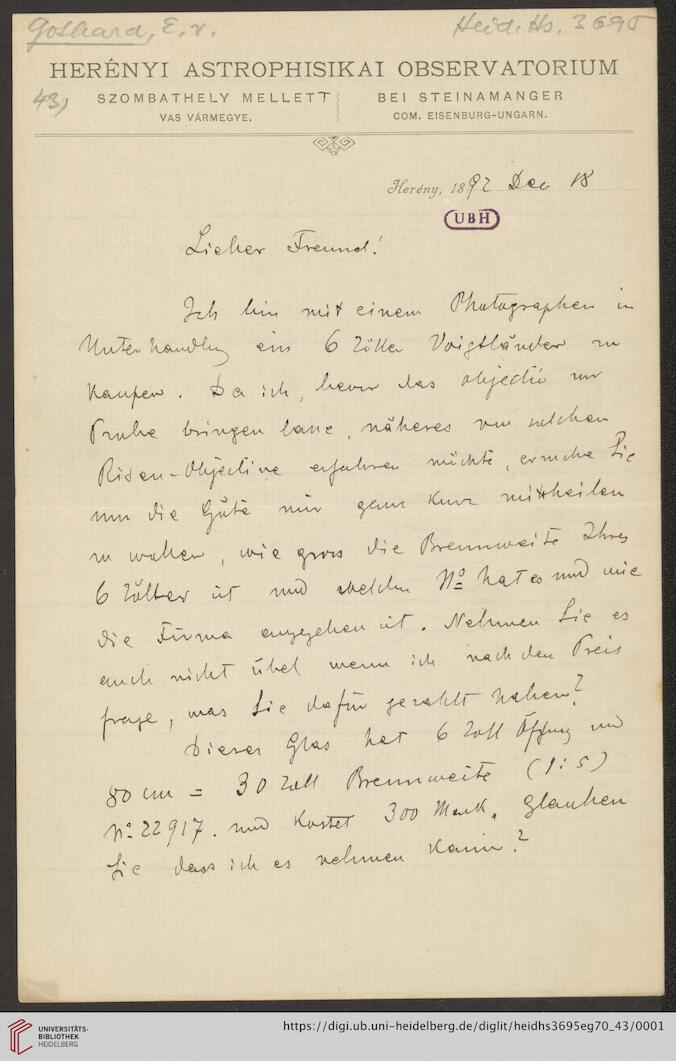 Gothard, E. v.
Heid. Hs. 3695
HERÉNYI ASTROPHISIKAI OBSERVATORIUM
43)
SZOMBATHELY MELLETT
BEI STEINAMANGER
VAS VÁRMEGYE.
COM. EISENBURG-UNGARN.
Herény, 1892 Dec 18
UBH
Lieber Freund!
Ich bin mit einem Photographen in
Unterhandlung ein 6 Zöller Voigtländer zu
Kaufen. Da ich, bevor das objectiv zur
Probe bringen lasse, näheres von solchen
Risen-Objective erfahren möchte, ersuche Sie
um die Güte mir ganz Kurz mittheilen
zu wollen, wie gross die Brennweite Ihres
6 Zöller ist und welchen No hat es und wie
die Firma angegeben ist. Nehmen Sie es
auch nicht übel wenn ich nach den Preis
frage, was Sie dafür gezahlt haben?
Dieses Glas hat 6 Zoll Öffnung und
80 cm = 30 Zoll Brennweite (1:5)
No 22917. und Kostet 300 Mark. Glauben
Sie dass ich es nehmen Kann?
UNIVERSITÄTS-
BIBLIOTHEK
HEIDELBERG
https://digi.ub.uni-heidelberg.de/diglit/heidhs3695eg70_43/0001